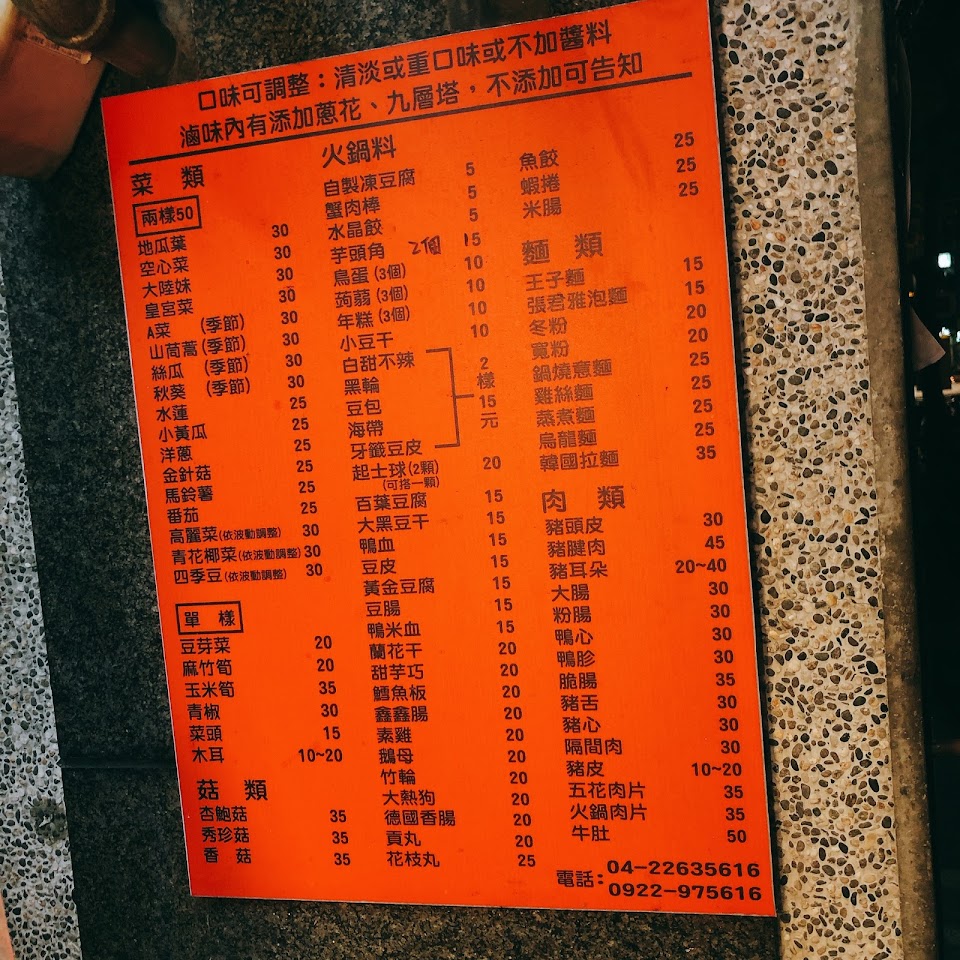 口味可調整：清淡或重口味或不加醬料
滷味內有添加蔥花、九層塔，不添加可告知
菜 類
兩樣50
地瓜葉 30
空心菜 30
大陸妹 30
皇宮菜 30
A菜 (季節) 30
山茼蒿(季節) 30
絲瓜 (季節) 30
秋葵 (季節) 30
水蓮 25
小黃瓜 25
洋蔥 25
金針菇 25
馬鈴薯 25
番茄 25
高麗菜(依波動調整) 30
青花椰菜(依波動調整) 30
四季豆(依波動調整) 30
單 樣
豆芽菜 20
麻竹筍 20
玉米筍 35
青椒 30
菜頭 15
木耳 10~20
菇 類
杏鮑菇 35
秀珍菇 35
香 菇 35
火鍋料
自製凍豆腐 5
蟹肉棒 5
水晶餃 5
芋頭角 2個 15
鳥蛋(3個) 10
蒟蒻(3個) 10
年糕(3個) 10
小豆干 10
白甜不辣
黑輪
豆包
海帶
牙籤豆皮
2樣15元
起士球(2顆) 20
(可搭一顆)
百葉豆腐 15
大黑豆干 15
鴨血 15
豆皮 15
黃金豆腐 15
豆腸 15
鴨米血 15
蘭花干 20
甜芋巧 20
鱈魚板 20
鑫鑫腸 20
素雞 20
鵝母 20
竹輪 20
大熱狗 20
德國香腸 20
貢丸 20
花枝丸 25
魚餃 25
蝦捲 25
米腸 25
麵 類
王子麵 15
張君雅泡麵 15
冬粉 20
寬粉 20
鍋燒意麵 25
雞絲麵 25
蒸煮麵 25
烏龍麵 25
韓國拉麵 35
肉 類
豬頭皮 30
豬腱肉 45
豬耳朵 20~40
大腸 30
粉腸 30
鴨心 30
鴨胗 30
脆腸 35
豬舌 30
豬心 30
隔間肉 30
豬皮 10~20
五花肉片 35
火鍋肉片 35
牛肚 50
電話：04-22635616
0922-975616